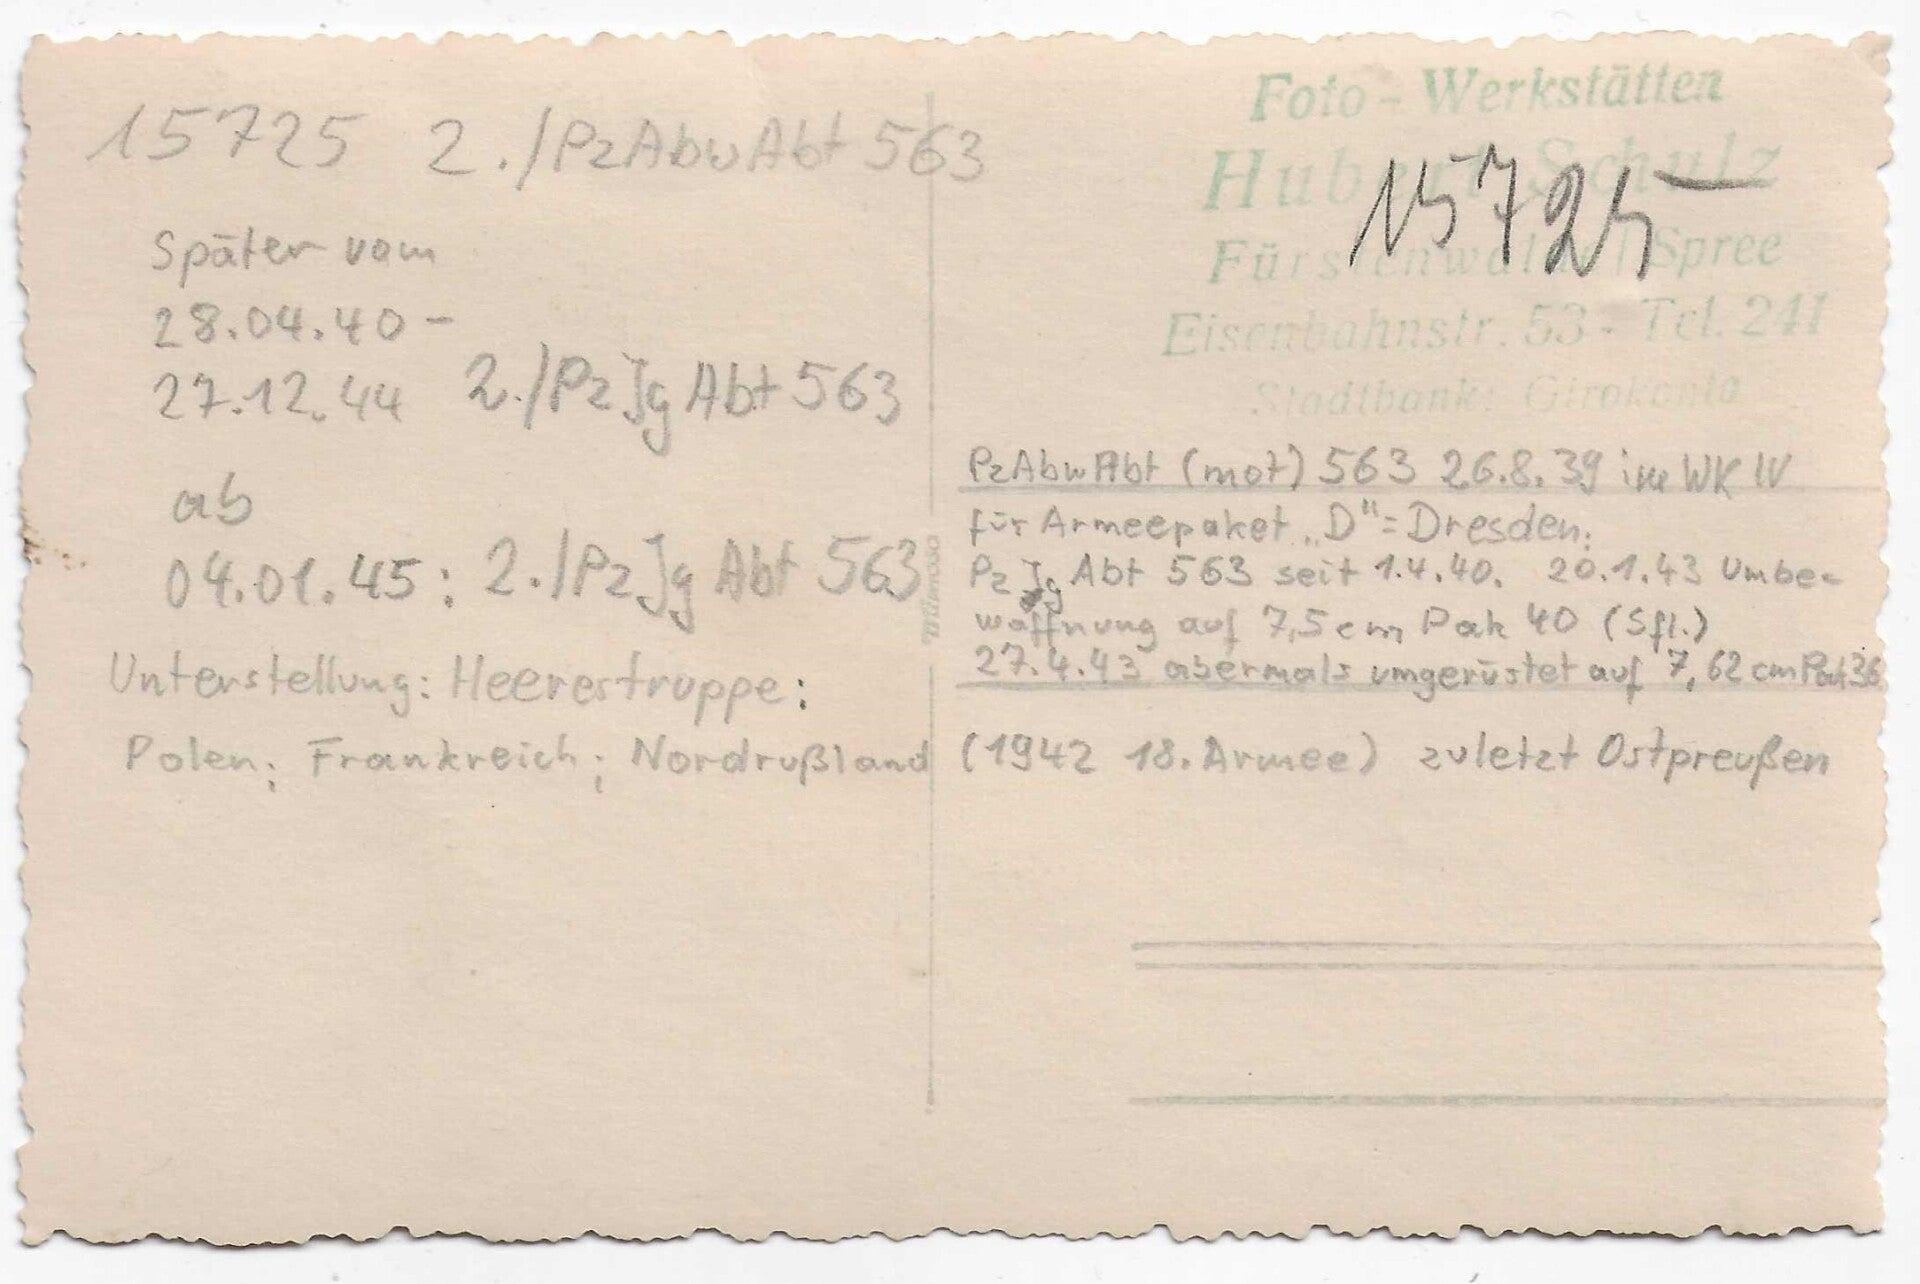 15725 2./PzAbwAbt 563
Später vom
28.04.40 -
27.12.44 2./PzJgAbt 563
ab
04.01.45: 2./PzJgAbt 563
Unterstellung: Heerestruppe:
Polen; Frankreich; Nordrußland (1942 18. Armee) zuletzt Ostpreußen
Foto - Werkstätten
Hubert Schulz
15725
Fürstenwalde / Spree
Eisenbahnstr. 53 - Tel. 241
Stadtbank: Girokonto
PzAbwAbt (mot) 563 26.8.39 im WK IV
für Armeepaket „D"=Dresden.
PzJgAbt 563 seit 1.4.40. 20.1.43 Umbe-
waffnung auf 7,5 cm Pak 40 (Sfl.)
27.4.43 abermals umgerüstet auf 7,62 cm Pak 36